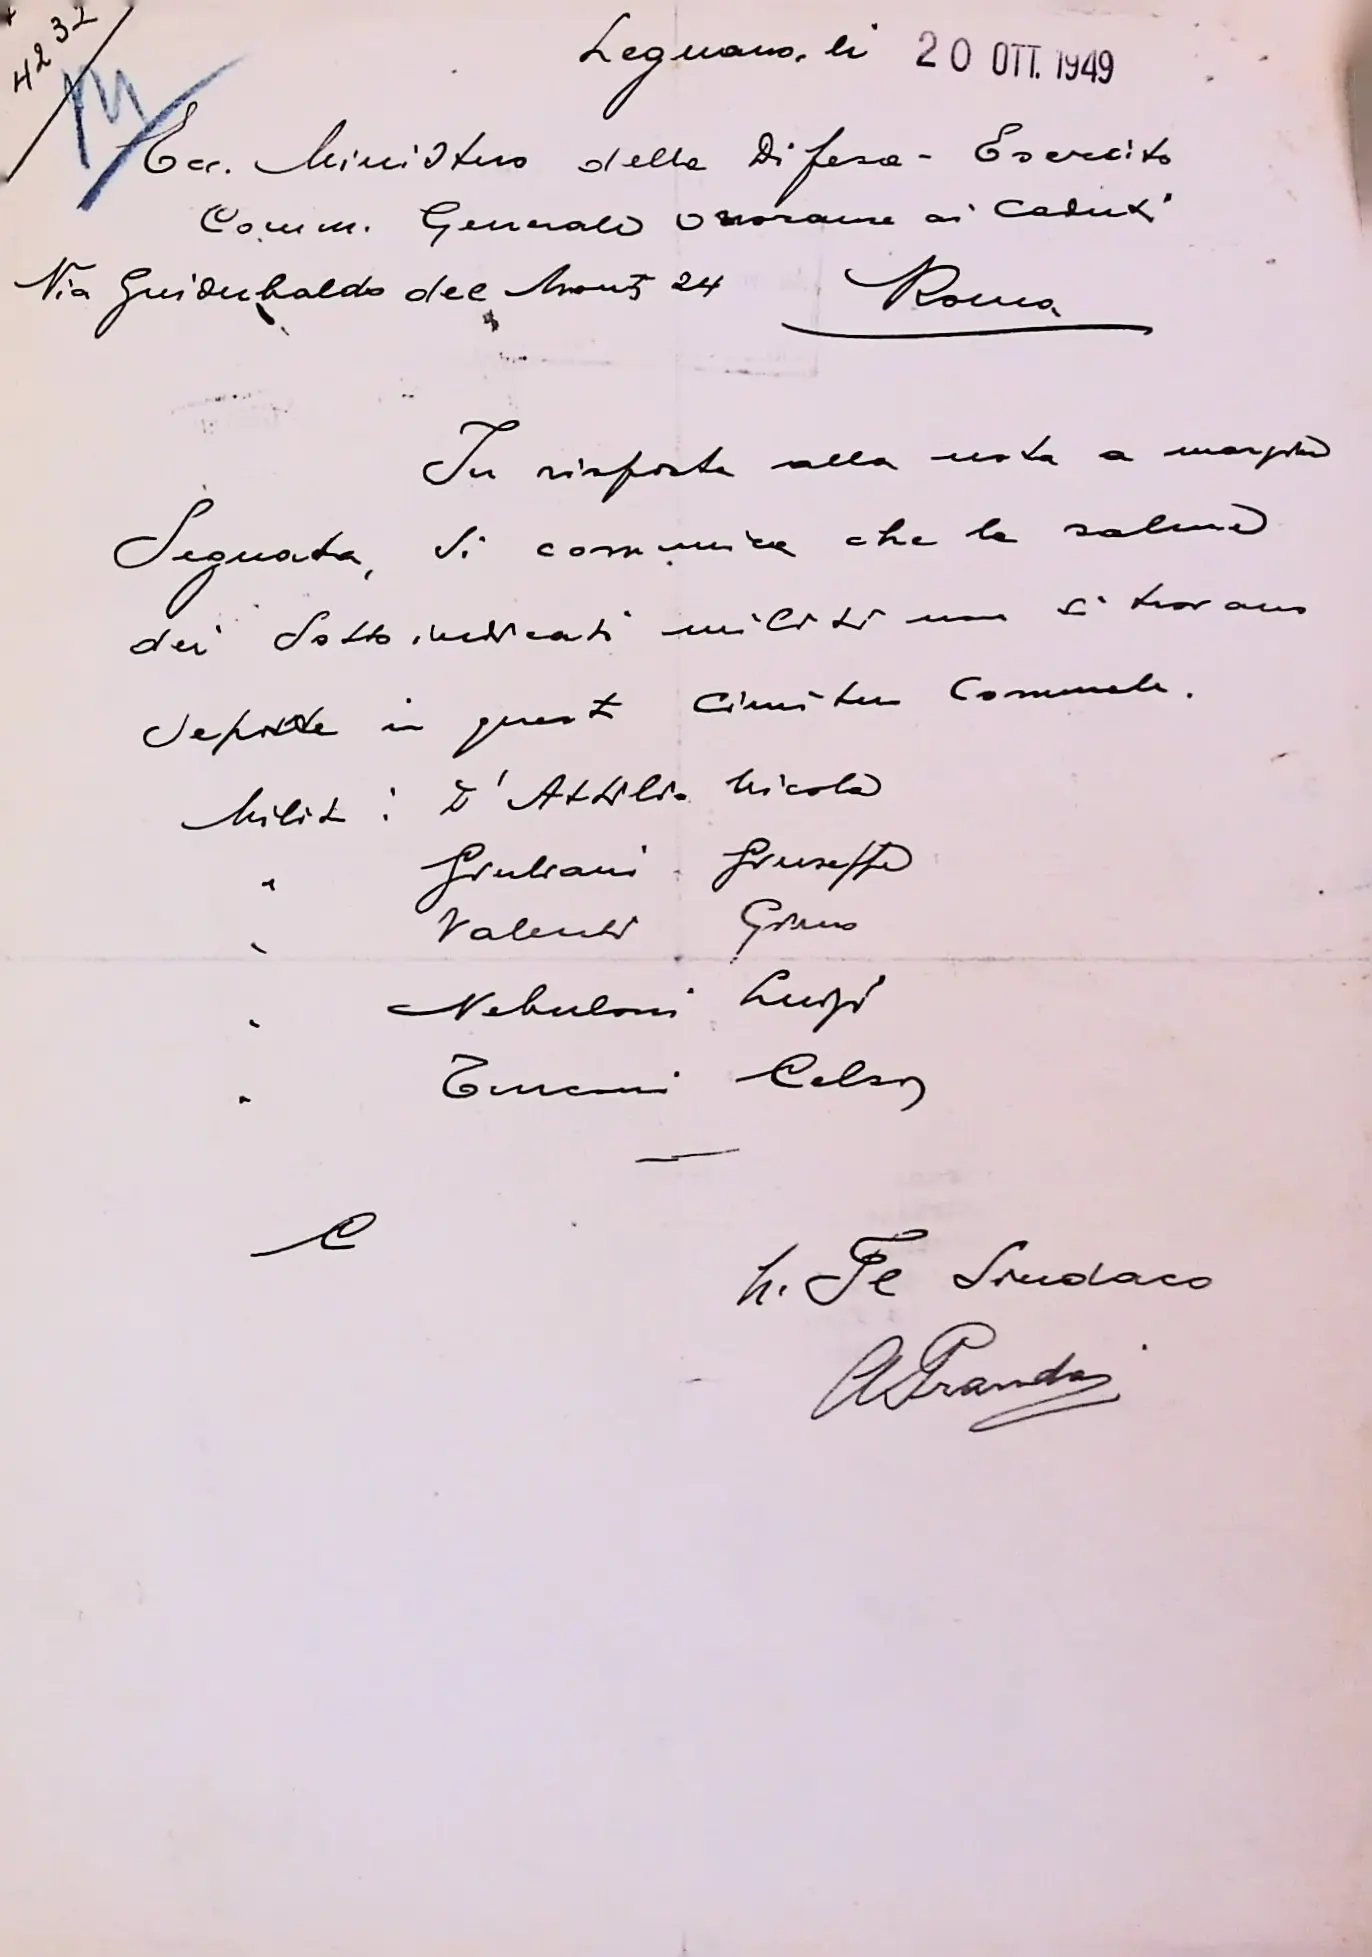 4232
Legnano, li 20 OTT. 1949
Ecc. Ministero della Difesa - Esercito
Comm. Generale Onoranze ai Caduti
Via Guidubaldo del Monte 24 Roma
In risposta alla nota a margine
Segnata, si comunica che le salme
dei sottoindicati militi non si trovano
deposte in questo Cimitero Comunale.
Militi : D'Attilio Nicola
" Giuliani Giuseppe
" Valenti Gino
" Nebuloni Luigi
" Turconi Celso
Sindaco